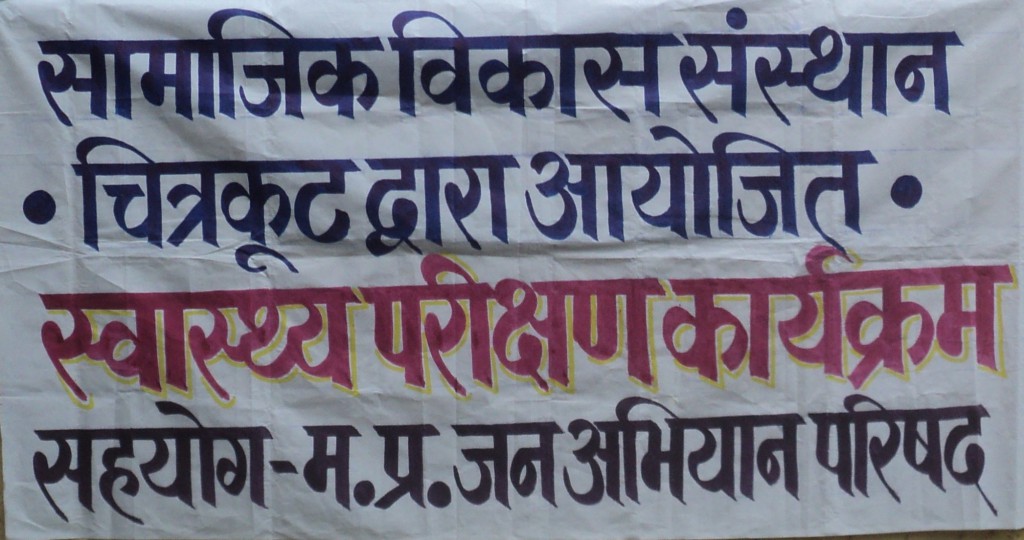 सामाजिक विकास संस्थान
• चित्रकूट द्वारा आयोजित •
स्वास्थ्य परीक्षण कार्यक्रम
सहयोग - म.प्र. जन अभियान परिषद